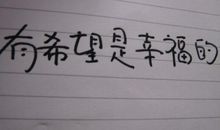 有希望是幸福的